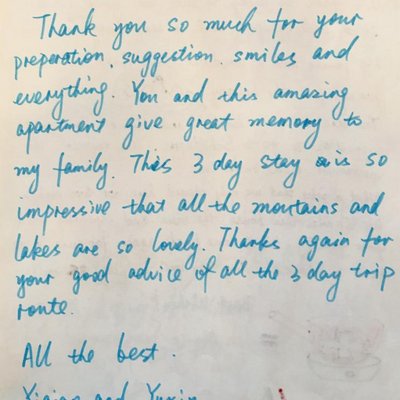 Thank you so much for your
preperation, suggestion, smiles and
everything. You and this amazing
apartment give great memory to
my family. This 3 day stay is so
impressive that all the mountains and
lakes are so lovely. Thanks again for
your good advice of all the 3 day trip
route.
All the best.
and